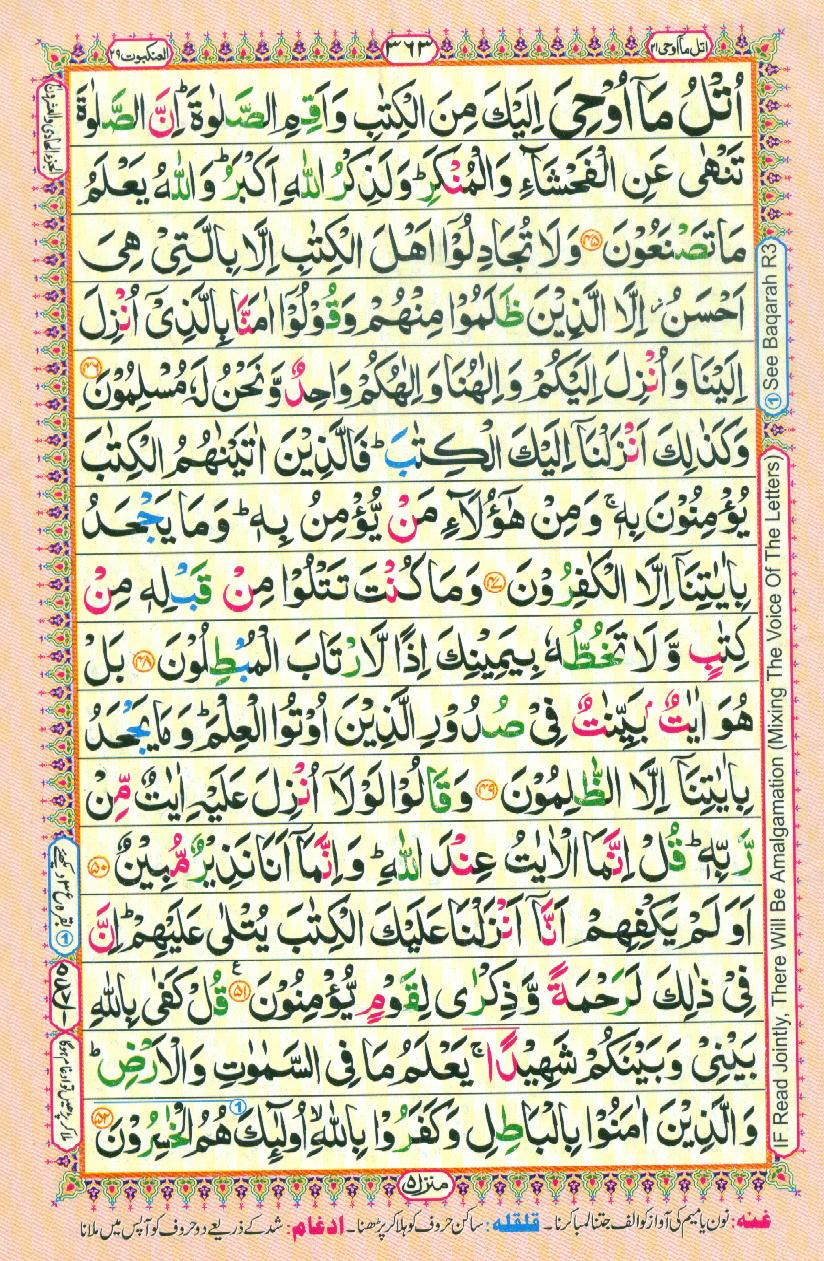 اتل ما اوحی ٢١
٣٦٣
العنکبوت ٢٩
اُتْلُ مَاۤ اُوْحِیَ اِلَیْكَ مِنَ الْكِتٰبِ وَاَقِمِ الصَّلٰوةَ ؕ اِنَّ الصَّلٰوةَ
تَنْهٰی عَنِ الْفَحْشَآءِ وَالْمُنْكَرِ ؕ وَلَذِكْرُ اللّٰهِ اَكْبَرُ ؕ وَاللّٰهُ یَعْلَمُ
مَا تَصْنَعُوْنَ ﴿۴۵﴾ وَلَا تُجَادِلُوْۤا اَهْلَ الْكِتٰبِ اِلَّا بِالَّتِیْ هِیَ
اَحْسَنُ ۖ اِلَّا الَّذِیْنَ ظَلَمُوْا مِنْهُمْ وَقُوْلُوْۤا اٰمَنَّا بِالَّذِیْۤ اُنْزِلَ
اِلَیْنَا وَاُنْزِلَ اِلَیْكُمْ وَاِلٰهُنَا وَاِلٰهُكُمْ وَاحِدٌ وَّنَحْنُ لَهٗ مُسْلِمُوْنَ ﴿۴۶﴾
وَكَذٰلِكَ اَنْزَلْنَاۤ اِلَیْكَ الْكِتٰبَ ؕ فَالَّذِیْنَ اٰتَیْنٰهُمُ الْكِتٰبَ
یُؤْمِنُوْنَ بِهٖ ۚ وَمِنْ هٰۤؤُلَآءِ مَنْ یُّؤْمِنُ بِهٖ ؕ وَمَا یَجْحَدُ
بِاٰیٰتِنَاۤ اِلَّا الْكٰفِرُوْنَ ﴿۴۷﴾ وَمَا كُنْتَ تَتْلُوْا مِنْ قَبْلِهٖ مِنْ
كِتٰبٍ وَّلَا تَخُطُّهٗ بِیَمِیْنِكَ اِذًا لَّارْتَابَ الْمُبْطِلُوْنَ ﴿۴۸﴾ بَلْ
هُوَ اٰیٰتٌۢ بَیِّنٰتٌ فِیْ صُدُوْرِ الَّذِیْنَ اُوْتُوا الْعِلْمَ ؕ وَمَا یَجْحَدُ
بِاٰیٰتِنَاۤ اِلَّا الظّٰلِمُوْنَ ﴿۴۹﴾ وَقَالُوْا لَوْلَاۤ اُنْزِلَ عَلَیْهِ اٰیٰتٌ مِّنْ
رَّبِّهٖ ؕ قُلْ اِنَّمَا الْاٰیٰتُ عِنْدَ اللّٰهِ ؕ وَاِنَّمَاۤ اَنَا نَذِیْرٌ مُّبِیْنٌ ﴿۵۰﴾
اَوَلَمْ یَكْفِهِمْ اَنَّاۤ اَنْزَلْنَا عَلَیْكَ الْكِتٰبَ یُتْلٰی عَلَیْهِمْ ؕ اِنَّ
فِیْ ذٰلِكَ لَرَحْمَةً وَّذِكْرٰی لِقَوْمٍ یُّؤْمِنُوْنَ ﴿۵۱﴾ ع قُلْ كَفٰی بِاللّٰهِ
بَیْنِیْ وَبَیْنَكُمْ شَهِیْدًا ۚ یَعْلَمُ مَا فِی السَّمٰوٰتِ وَالْاَرْضِ ؕ
وَالَّذِیْنَ اٰمَنُوْا بِالْبَاطِلِ وَكَفَرُوْا بِاللّٰهِ ۙ اُولٰٓئِكَ هُمُ الْخٰسِرُوْنَ ﴿۵۲﴾
منزل ۵
غنہ: نون یا میم کی آواز کو الف جتنا لمبا کرنا۔ قلقلہ: ساکن حروف کو ہلا کر پڑھنا۔ ادغام: شد کے ذریعے دو حروف کو آپس میں ملانا
① See Baqarah R3
IF Read Jointly, There Will Be Amalgamation (Mixing The Voice Of The Letters)
الجزء الحادی والعشرون
① بقرہ ع ۳ دیکھیے